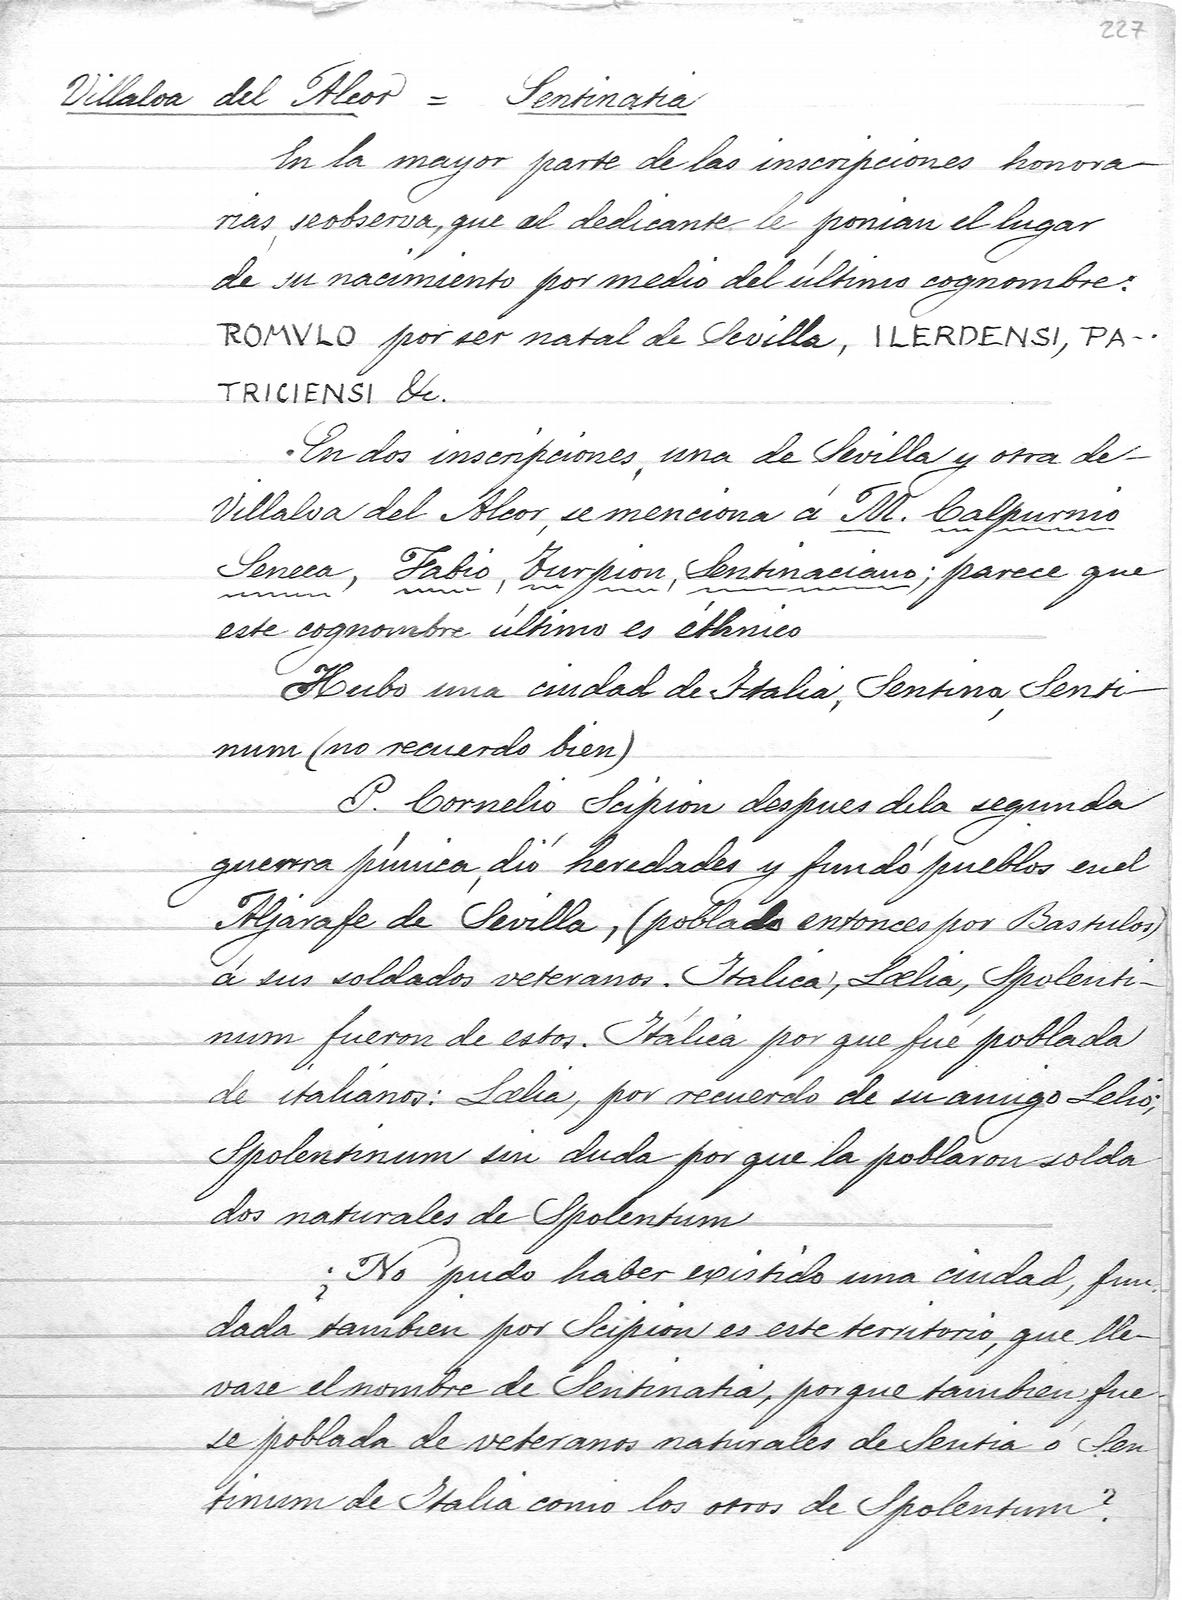 227
Villalva del Alcor = Sentinatia
En la mayor parte de las inscripciones honora-
rias, se observa, que al dedicante le ponian el lugar
de su nacimiento por medio del último cognombre:
ROMVLO por ser natal de Sevilla, ILERDENSI, PA-
TRICIENSI &c.
En dos inscripciones, una de Sevilla y otra de
Villalva del Alcor, se menciona á M. Calpurnio
Seneca, Fabio, Turpion, Sentinaciano; parece que
este cognombre último es éthnico
Hubo una ciudad de Italia, Sentina, Senti-
num (no recuerdo bien)
P. Cornelio Scipion despues de la segunda
guerra púnica, dió heredades y fundó pueblos en el
Aljarafe de Sevilla, (poblado entonces por Bastulos)
á sus soldados veteranos. Italica, Lælia, Spolenti-
num fueron de estos. Itálica por que fué poblada
de italianos: Lælia, por recuerdo de su amigo Lelio;
Spolentinum sin duda por que la poblaron solda
dos naturales de Spolentum
¿No pudo haber existido una ciudad, fun-
dada tambien por Scipion es este territorio, que lle-
vase el nombre de Sentinatia, porque tambien fue-
se poblada de veteranos naturales de Sentia ó Sen
tinum de Italia como los otros de Spolentum?